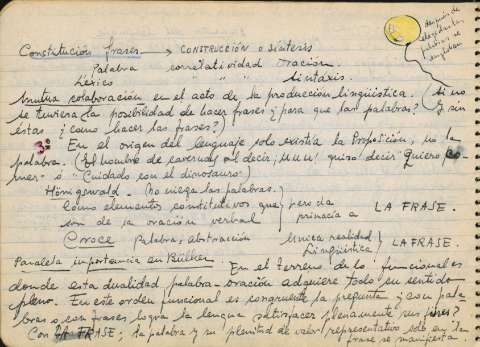 Constitución frases → CONSTRUCCIÓN o Síntesis
Palabra correlatividad oración.
Léxico " " Sintáxis.
Mutua colaboración en el acto de la producción lingüística. (Si no
se tuviera la posibilidad de hacer frases ¿para que las palabras? Y sin
éstas ¿como hacer las frases?)
3º En el origen del lenguaje solo existía la Proposición, no la
palabra. (El hombre de cavernas al decir ¡Muu! quiso decir "Quiero co-
mer" ó "Cuidado con el dinosauro")
Hönigswald - (No niega las palabras.)
Como elementos constitutivos que pero da
son de la oración verbal primacia a LA FRASE.
Croce Palabra, abstracción Unica realidad
Lingüística LA FRASE.
Paralela importancia en Bülher. En el terreno de lo funcional es
donde esta dualidad palabra-oración adquiere todo su sentido
pleno. En este orden funcional es congruente la pregunta ¿con pala-
bras o con frases logra la lengua satisfacer plenamente sus fines?
Con LA FRASE; la palabra y su plenitud de valor representativo solo en la
frase se manifiesta.
Después de
elegidas las
palabras se